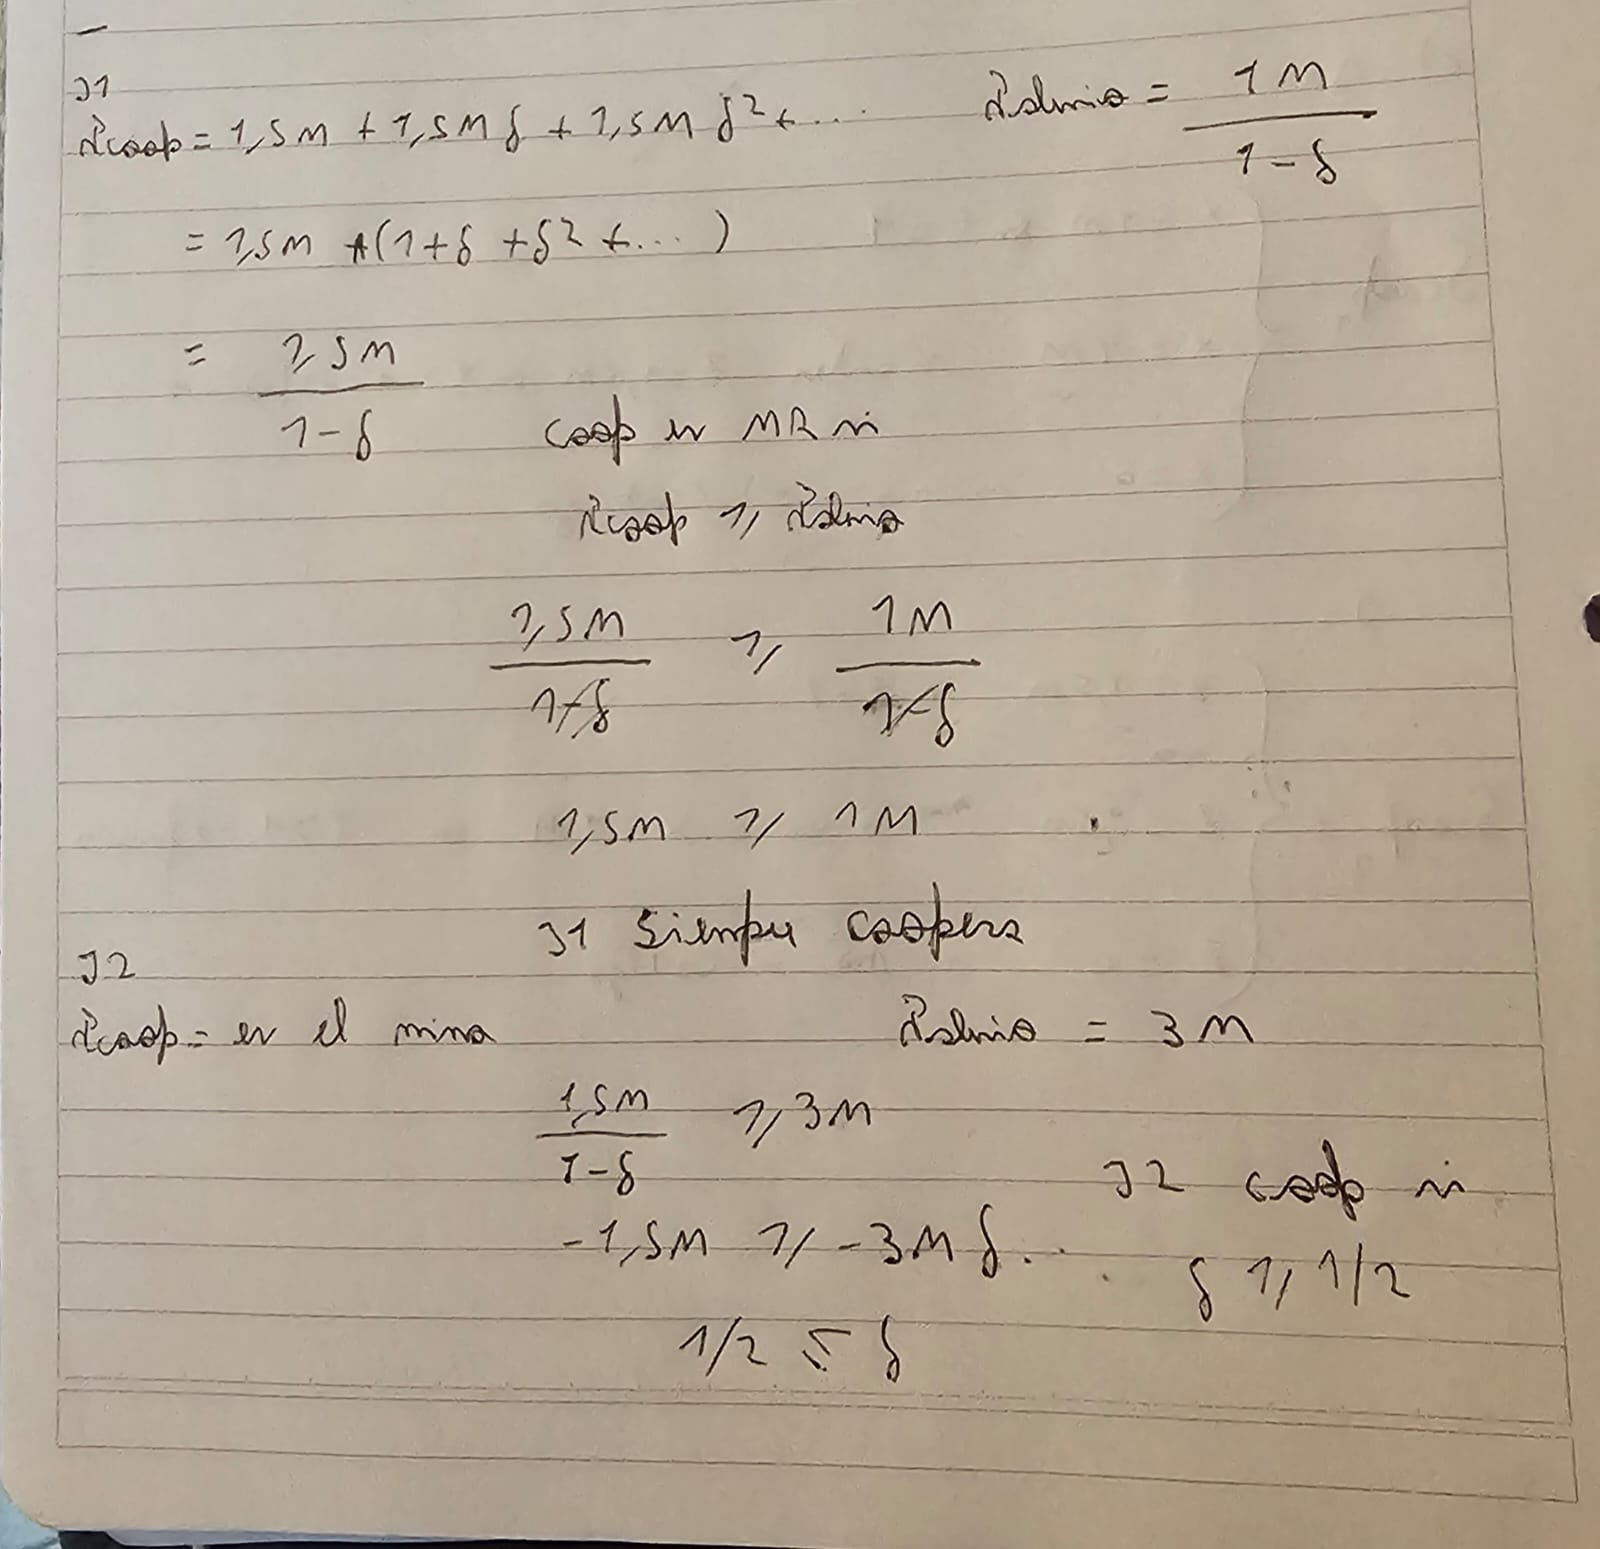 J1
πcoop = 1,5M + 1,5M δ + 1,5M δ² + ... πdesvio = 1M / 1-δ
= 1,5M * (1 + δ + δ² + ... )
= 1,5M / 1-δ
coop es MR si
πcoop ≥ πdesvio
1,5M / 1-δ ≥ 1M / 1-δ
1,5M ≥ 1M
J1 siempre coopera
J2
πcoop = es el mismo πdesvio = 3M
1,5M / 1-δ ≥ 3M
J2 coop si
-1,5M ≥ -3M δ
δ ≥ 1/2
1/2 ≤ δ